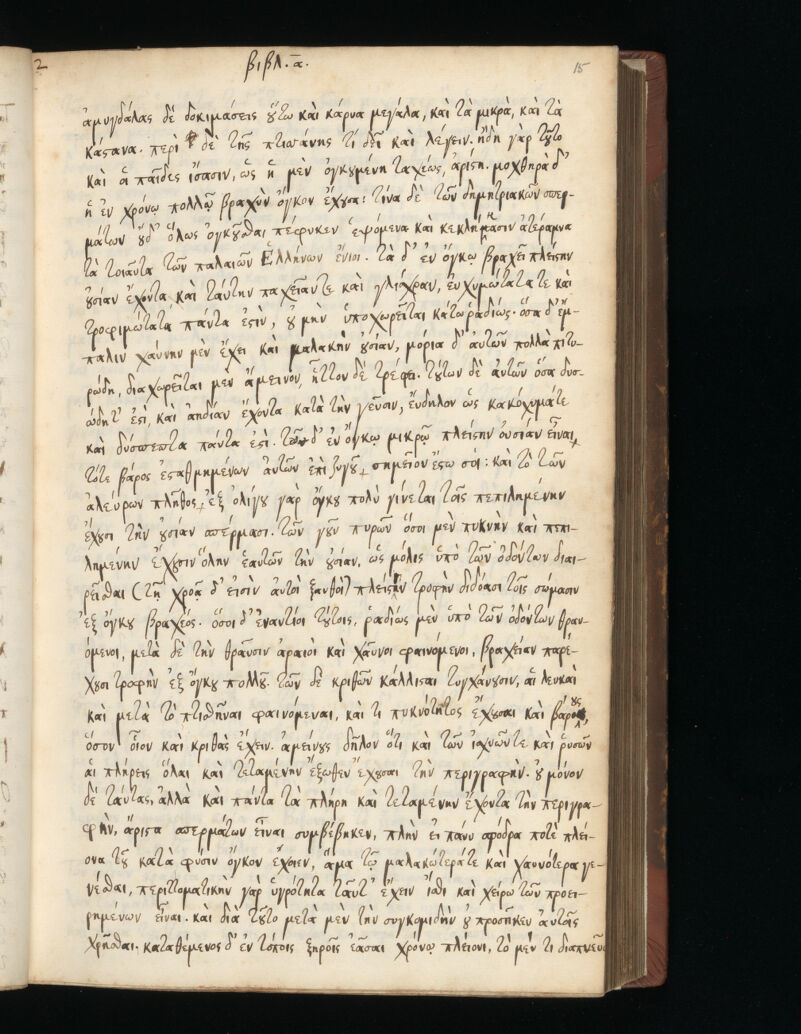 2
βιβλ. α.
15
ἀμυγδάλας δὲ δοκιμάσεις οὕτω καὶ κάρυα μεγάλα, καὶ τὰ μικρὰ, καὶ τὰ
κάστανα. περὶ δὲ τῆς πτισάνης τί δεῖ καὶ λέγειν. ἤδη γὰρ τοῦτο
καὶ οἱ παῖδες ἴσασιν, ὡς ἡ μὲν ὀγκουμένη ταχέως, ἀρίστη. μοχθηρὰ δ'
ἡ ἐν χρόνῳ πολλῷ βραχὺν ὄγκον ἔχουσα: τίνα δὲ τῶν δημητριακῶν σπερ-
μάτων οὐδ' ὅλως ὀγκοῦσθαι πέφυκεν ἑψόμενα καὶ κεκλήκασιν ἀτέραμνα
τὰ τοιαῦτα τῶν παλαιῶν Ἑλλήνων ἔνιοι. τὰ δ' ἐν ὄγκῳ βραχεῖ πλείστην
οὐσίαν ἔχοντα καὶ ταύτην παχεῖάν τε καὶ γλίσχραν, εὐχυμώτατά τε καὶ
τροφιμώτατα πάντα ἐστὶν, οὐ μὴν ὑποχωρεῖται κάτω ῥαδίως. ὅσα δ' ἔμ-
παλιν χαύνην μὲν ἔχει καὶ μαλακὴν οὐσίαν, μόρια δ' αὐτῶν πολλὰ πιτυ-
ρώδη, διαχωρεῖται μὲν ἄμεινον, ἧττον δὲ τρέφει. τούτων δὲ αὐτῶν ὅσα δυσ-
ώδη τ' ἐστὶ, καὶ ἀηδίαν ἔχοντα κατὰ τὴν γεῦσιν, εὔδηλον ὡς κακόχυμά τε
καὶ δύσπεπτα πάντα ἐστὶ. τοῦ δ' ἐν ὄγκῳ μικρῷ πλείστην οὐσίαν εἶναι,
τό τε βάρος ἐσταθμημένων αὐτῶν ἐπὶ ζυγοῦ, σημεῖον ἔστω σοί: καὶ τὸ τῶν
ἀλεύρων πλῆθος, ἐξ ὀλίγου γὰρ ὄγκου πολὺ γίνεται τοῖς πεπιλημένην
ἔχουσι τὴν οὐσίαν σπέρμασι. τῶν γοῦν πυρῶν ὅσοι μὲν πυκνὴν καὶ πεπι-
λημένην ἔχουσιν ὅλην ἑαυτῶν τὴν οὐσίαν, ὡς μόλις ὑπὸ τῶν ὀδόντων διαι-
ρεῖσθαι (τῇ χροᾷ δ' εἰσὶν αὐτοὶ ξανθοί) πλείστην τροφὴν διδόασι τοῖς σώμασιν
ἐξ ὄγκου βραχέος. ὅσοι δ' ἐναντίοι τούτοις, ῥαδίως μὲν ὑπὸ τῶν ὀδόντων θραυ-
όμενοι, μετὰ δὲ τὴν θραῦσιν ἀραιοὶ καὶ χαῦνοι φαινόμενοι, βραχεῖαν παρέ-
χουσι τροφὴν ἐξ ὄγκου πολλοῦ. τῶν δὲ κριθῶν κάλλισται τυγχάνουσιν, αἱ λευκαὶ
καὶ μετὰ τὸ πτισθῆναι φαινόμεναι, καὶ τι πυκνότητος ἔχουσαι καὶ βάρους,
ὅσον οἷον καὶ κριθὰς ἔχειν. ἀμείνους δῆλον ὅτι καὶ τῶν ἰσχνῶν τε καὶ ῥυσῶν
αἱ πλήρεις ὅλαι καὶ τεταμένην ἔξωθεν ἔχουσαι τὴν περιγραφὴν. οὐ μόνον
δὲ ταύτας, ἀλλὰ καὶ πάντα τὰ πλήρη καὶ τεταμένην ἔχοντα τὴν περιγρα-
φὴν, ἄριστα σπερμάτων εἶναι συμβέβηκεν, πλὴν εἰ πάνυ σφόδρα ποτὲ πλεί-
ονα τοῦ κατὰ φύσιν ὄγκον ἔχοιεν, ἅμα τῷ μαλακώτερά τε καὶ χαυνότερα γε-
νέσθαι, περιττωματικὴν γὰρ ὑγρότητα ταῦτ' ἔχειν ἴσθι καὶ χείρω τῶν προει-
ρημένων εἶναι. καὶ διὰ τοῦτο μετὰ μὲν τὴν συγκομιδὴν οὐ προσῆκεν αὐταῖς
χρῆσθαι. καταθέμενος δ' ἐν τόποις ξηροῖς ἐᾶσαι χρόνῳ πλείονι, τὸ μέν τι διαπνεῦσ